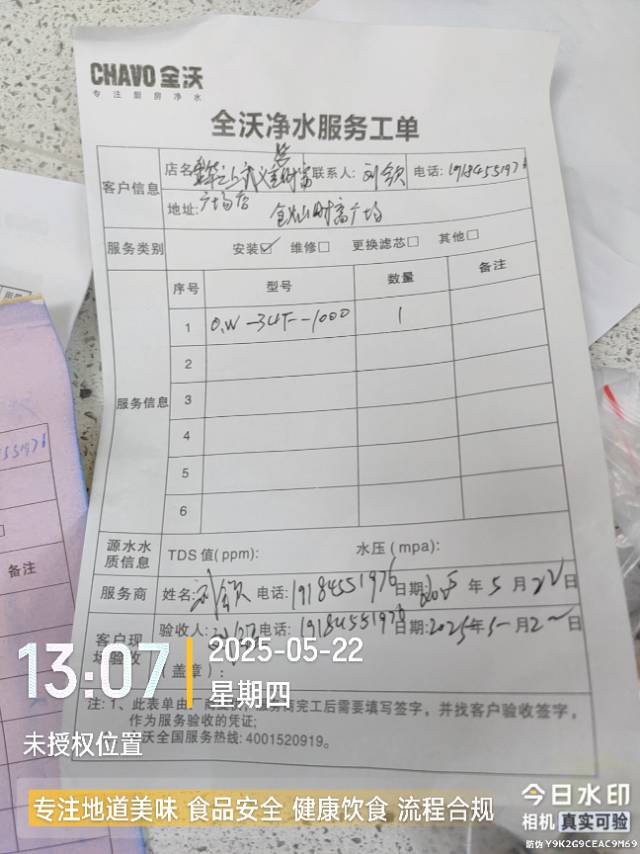 CHAVO 全沃
专注厨房净水
全沃净水服务工单
客户信息
店名 联系人: 刘钦 电话: 19184551976
广场店
地址: 金山财富广场
服务类别 安装☑ 维修□ 更换滤芯□ 其他□
服务信息
序号 型号 数量 备注
1 O.W-34F-1000 1
2
3
4
5
6
源水水质信息 TDS 值(ppm): 水压(mpa):
服务商 姓名: 刘钦 电话: 19184551976 日期: 2025 年 5 月 22 日
客户现场验收 验收人: 电话: 日期: 2025年5月22日
(盖章):
注: 1、此表单由厂商 服务商完工后需要填写签字，并找客户验收签字，
作为服务验收的凭证;
沃全国服务热线: 4001520919。
备注
13:07
2025-05-22
星期四
未授权位置
专注地道美味 食品安全 健康饮食 流程合规
今日水印
相机 真实可验
防伪 Y9K2G9CEAC9M69